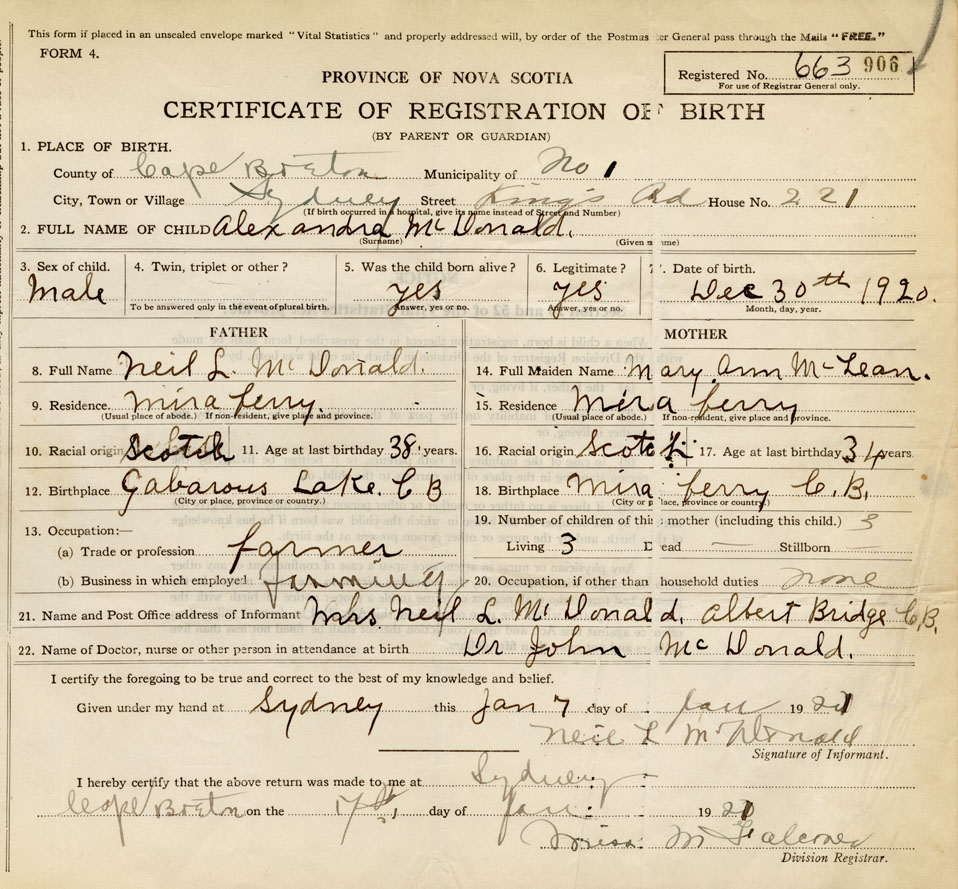 This form if placed in an unsealed envelope marked "Vital Statistics" and properly addressed will, by order of the Postmaster General pass through the Mails "FREE."
FORM 4.
PROVINCE OF NOVA SCOTIA
Registered No. 663 906
For use of Registrar General only.
CERTIFICATE OF REGISTRATION OF BIRTH
(BY PARENT OR GUARDIAN)
1. PLACE OF BIRTH.
County of Cape Breton Municipality of No 1
City, Town or Village Sydney Street Kings Rd House No. 221
(If birth occurred in a hospital, give its name instead of Street and Number)
2. FULL NAME OF CHILD Alexandra McDonald.
(Surname) (Given name)
3. Sex of child. 4. Twin, triplet or other? 5. Was the child born alive? 6. Legitimate? 7. Date of birth.
Male yes yes Dec 30th 1920.
To be answered only in the event of plural birth. Answer, yes or no. Answer, yes or no. Month, day, year.
FATHER MOTHER
8. Full Name Neil L. McDonald. 14. Full Maiden Name Mary Ann McLean.
9. Residence. Mira ferry. 15. Residence Mira ferry
(Usual place of abode.) If non-resident, give place and province. (Usual place of abode.) If non-resident, give place and province.
10. Racial origin Scotch 11. Age at last birthday 38 years. 16. Racial origin Scotch 17. Age at last birthday 34 years
12. Birthplace Gabarous Lake. C B 18. Birthplace Mira ferry C.B.
(City or place, province or country.) (City or place, province or country.)
13. Occupation:— 19. Number of children of this mother (including this child.) 3
(a) Trade or profession farmer Living 3 Dead — Stillborn —
(b) Business in which employed farming 20. Occupation, if other than household duties none
21. Name and Post Office address of Informant Mrs. Neil L. McDonald, Albert Bridge C.B.
22. Name of Doctor, nurse or other person in attendance at birth Dr. John McDonald.
I certify the foregoing to be true and correct to the best of my knowledge and belief.
Given under my hand at Sydney this Jan 7 day of Jan 1921
Neil L McDonald
Signature of Informant.
I hereby certify that the above return was made to me at Sydney
Cape Breton on the 17th day of Jan 1921
Miss M Falconer
Division Registrar.